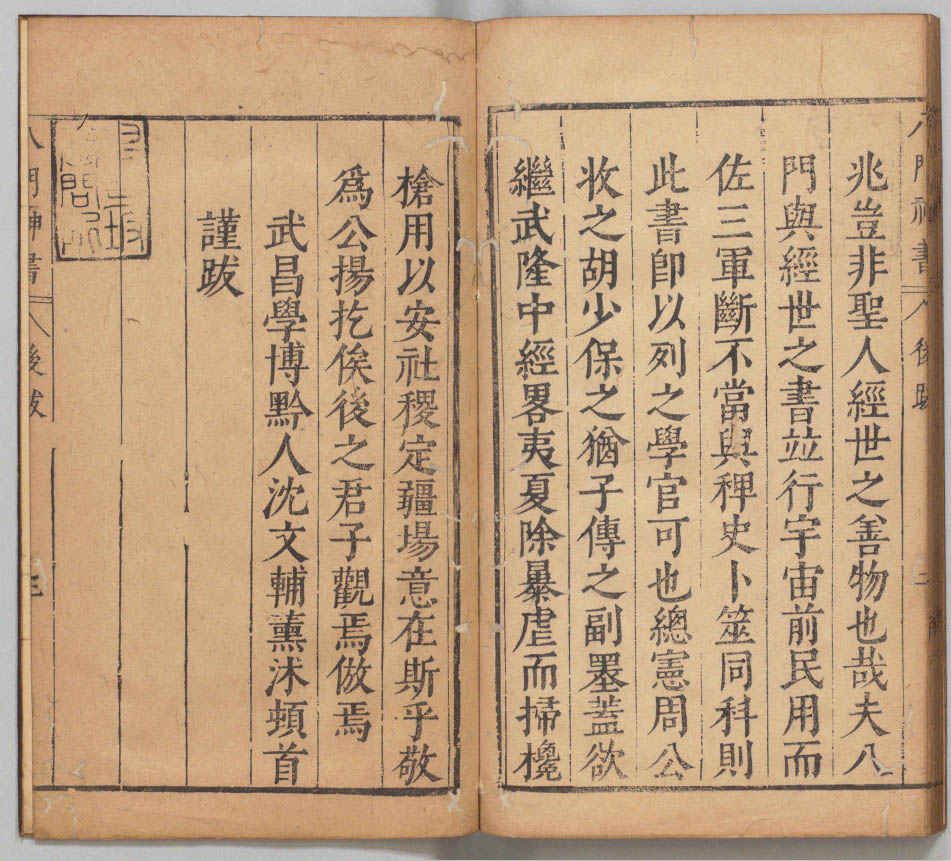 兆豈非聖人經世之善物也哉夫八
門與經世之書竝行宇宙前民用而
佐三軍斷不當與稗史卜筮同科則
此書卽以列之學官可也總憲周公
收之胡少保之猶子傳之副墨蓋欲
繼武隆中經畧夷夏除暴虐而掃欃
槍用以安社稷定疆場意在斯乎敬
爲公揚扢俟後之君子觀焉倣焉
武昌學博黔人沈文輔薰沐頓首
謹跋
八門神書 後跋